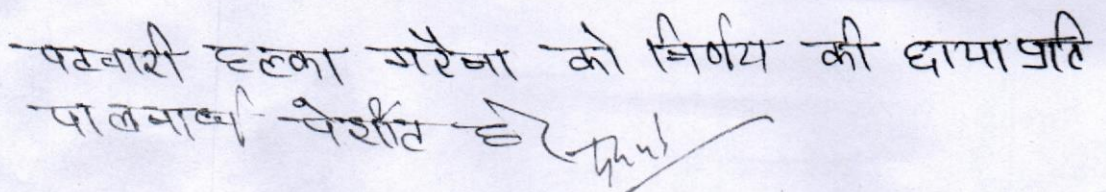 पटवारी हल्का गरैना को निर्णय की छाया प्रति
पालनार्थ प्रेषित है